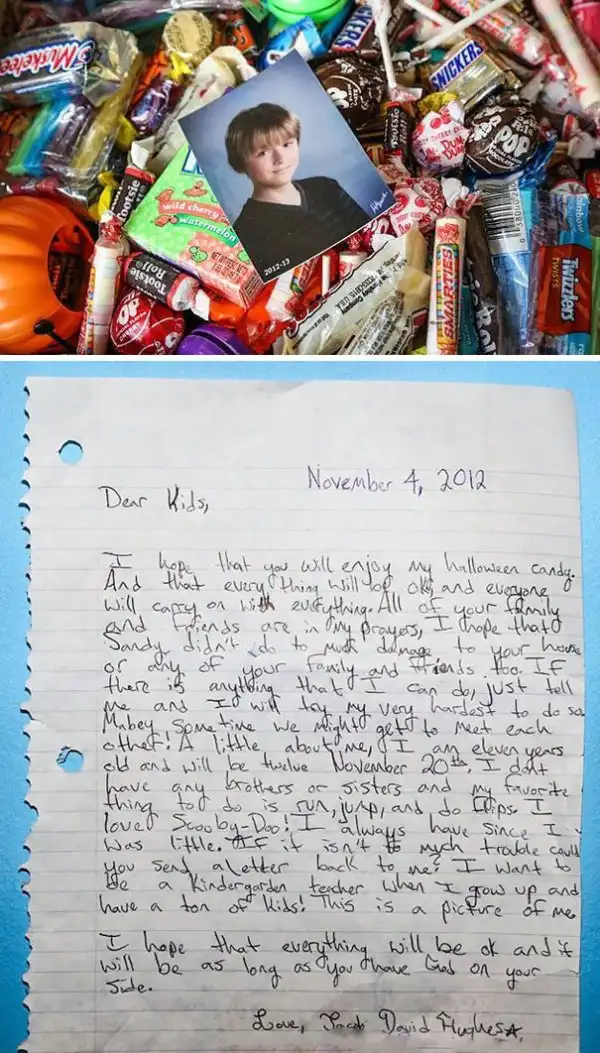 3 Musketeers
SNICKERS
SNICKERS
Tootsie
CHERRY
BUM
POP
wild cherry
watermelon
2012-13
Tootsie
Tootsie
Roll
POP
SMARTIES
Rainbow
Twizzlers
TWISTS
November 4, 2012
Dear Kids,
I hope that you will enjoy my halloween candy.
And that everything will be ok, and everyone
will carry on with everything. All of your family
and friends are in my prayers, I hope that
Sandy didn't do to much damage to your house
or any of your family and friends too. If
there is anything that I can do, just tell
me and I will try my very hardest to do so.
Mabey some time we might get to meet each
other! A little about me, I am eleven years
old and will be twelve November 20th. I dont
have any brothers or sisters and my favorite
thing to do is run, jump, and do flips. I
love Scooby-Doo! I always have since I
was little. If it isn't to much trouble could
you send a letter back to me? I want to
be a kindergarden teacher when I grow up and
have a ton of kids! This is a picture of me.
I hope that everything will be ok and it
will be as long as you have God on your
side.
Love, Jacob David Hughes